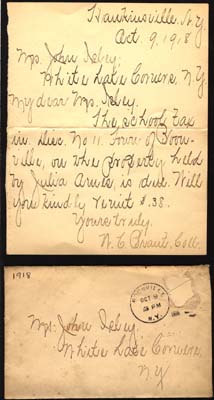 Hawkinsville, N.Y.
Oct. 9, 1918
Mrs. John Isley,
White Lake Corners, N.Y.
My dear Mrs. Isley.
The school tax
in Dist. No 11. Town of Boon-
ville, on the property held
by Julia is due. Will
you kindly remit $.38.
Yours truly,
N. C. Brant, Coll.
1918
BOONVILLE
OCT 9
PM
N.Y.
Mrs. John Isley,
White Lake Corners,
N.Y.